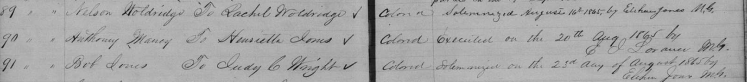 89 " " Nelson Woldridge To Rachel Woldridge ✓ Colored Solemnized August 10th 1865 by Elisha Jones M.G.
90 " " Anthony Maney To Henrietta Jones ✓ Colored Executed on the 20th Aug 1865 by
M.G.
91 " " Bob Jones To Judy C Wright ✓ Colored Solemnized on the 23rd day of August 1865 by
Jones M.G.